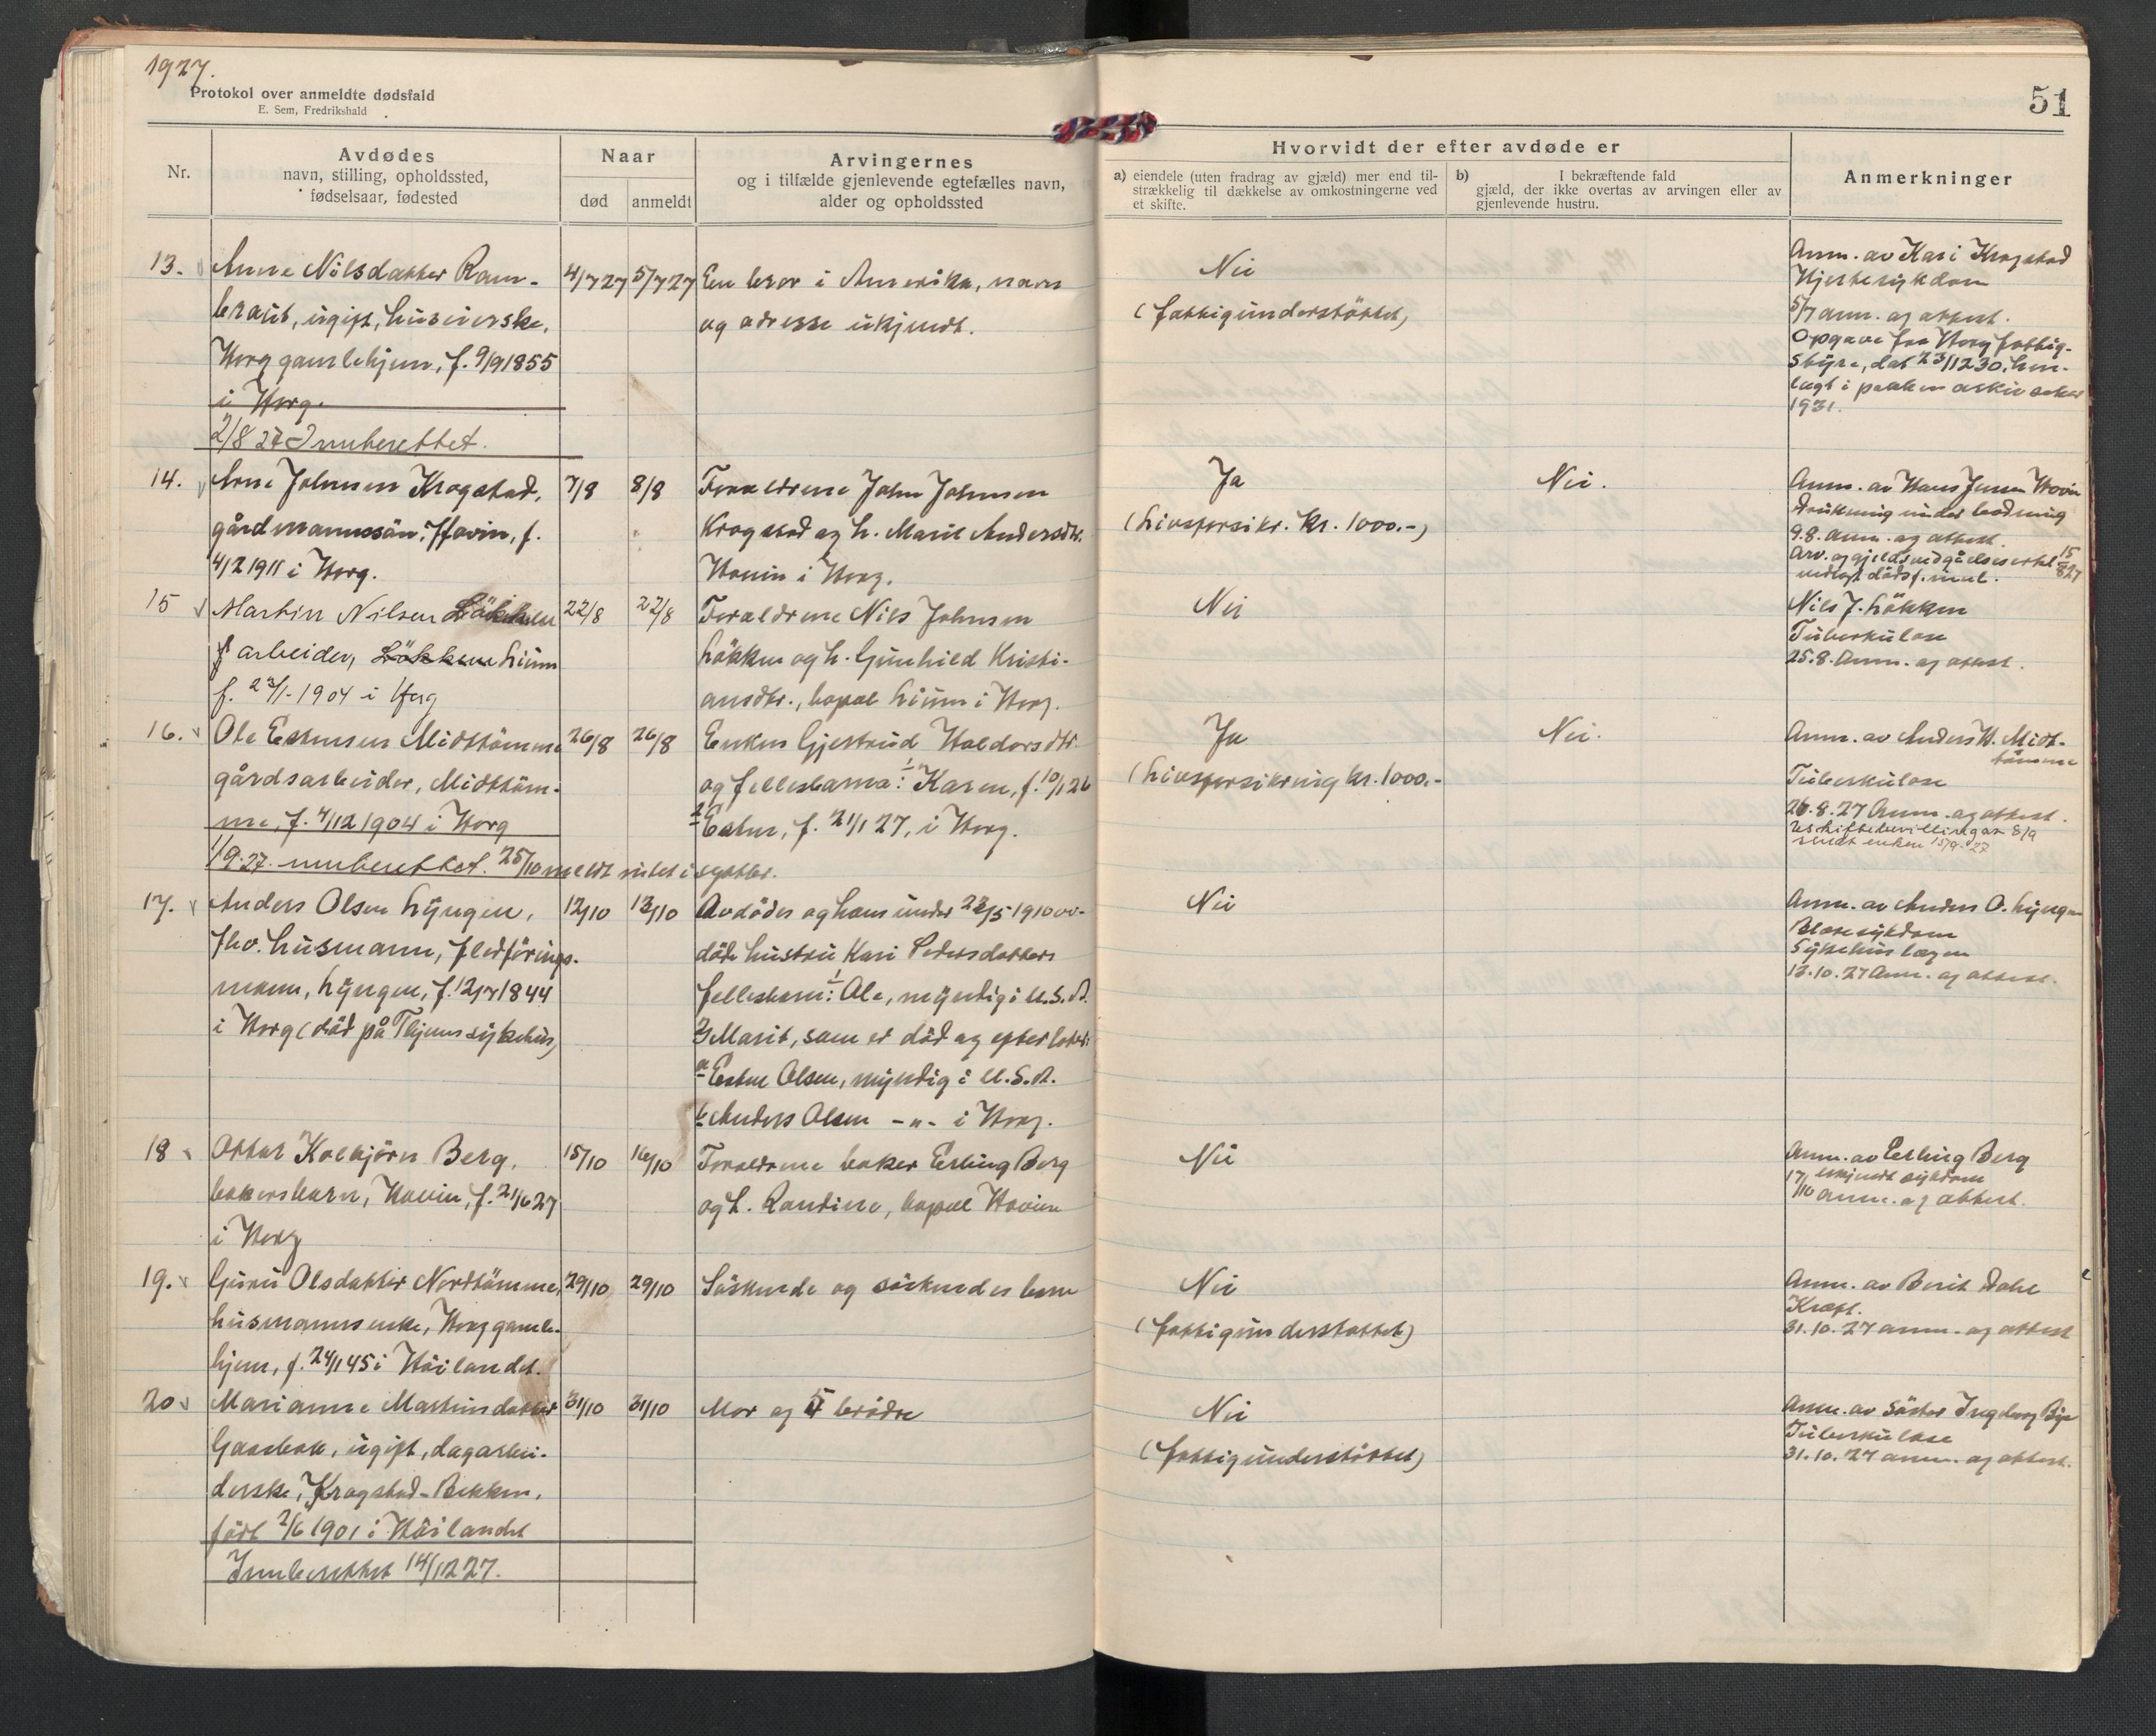 1927.
Protokol over anmeldte dødsfald
E. Sem, Fredrikshald
51
Nr.
Avdødes
navn, stilling, opholdssted,
fødselsaar, fødested
Naar
død
anmeldt
Arvingernes
og i tilfælde gjenlevende egtefælles navn,
alder og opholdssted
Hvorvidt der efter avdøde er
a) eiendele (uten fradrag av gjæld) mer end til-
strækkelig til dækkelse av omkostningerne ved
et skifte.
b) I bekræftende fald
gjæld, der ikke overtas av arvingen eller av
gjenlevende hustru.
Anmerkninger
13. Anne Nilsdatter Ram-
braut, ugift, huseierske,
Horg gamlehjem, f. 9/9 1855
i Horg.
2/8 27 Innberettet.
4/7 27
5/7 27
En bror i Amerika, navn
og adresse ukjendt.
Nei
(fattigunderstöttet)
Anm. av Kari Krogstad
Hjertesykdom
5/7 anm. og attest.
Opgave fra Horg fattig-
styre, dat 23/12 30, hen-
lagt i pakken arkivsaker
1931.
14. Arne Johnsen Krogstad,
gårdmannssön, Hovin, f.
4/2 1911 i Horg.
7/8
8/8
Foreldrene John Johnsen
Krogstad og h. Marit Andersdtr.
Hovin i Horg.
Ja
(Livsforsikr. kr. 1000.-)
Nei.
Anm. av Hans Jensen Hovin
Drukning under badning
9.8. anm. og attest.
Arv. og gjeldsvedgåelseserkl. 15/8 27
vedlagt dödsf. mel.
15 Martin Nilsen Lökken
arbeider, Lökken Lium
f. 23/1-1904 i Horg
22/8
22/8
Foreldrene Nils Johnsen
Lökken og h. Gunhild Kristi-
ansdtr., bopæl Lium i Horg.
Nei
Nils J. Lökken
Tuberkulose
25.8. Anm. og attest.
16. Ole Estensen Midttömme
gårdsarbeider, Midttöm-
me, f. 4/12 1904 i Horg
1/9.27. innberettet. 25/10 meldt
26/8
26/8
Enken Gjertrud Haldorsdtr.
og fellesbarna: 1 Karen, f. 10/1 26
2 Esten, f. 21/1 27, i Horg.
Ja
(Livsforsikring kr. 1000.-
Nei.
Anm. av Anders H. Midt-
tömme
Tuberkulose
26.8.27 Anm. og attest.
Uskiftebevillingav 8/9
sendt enken 15/9.27
17. Anders Olsen Lyngen,
fhv. husmann, fledförings-
mann, Lyngen, f. 12/7 1844
i Horg (död på Thjems sykehus)
12/10
13/10
Avdödes og hans under 23/5 1910 av-
döde hustru Kari Pedersdatters
fellesbarn: 1 Ole, myndig i U.S.A.
2 Marit, som er död og efterlater:
a Esten Olsen, myndig i U.S.A.
b Anders Olsen -"- i Horg.
Nei
Anm. av Anders O. Lyngen
Blæresykdom
Sykehuslægen
13.10.27 Anm. og attest.
18 Ottar Kolbjörn Berg,
bakersbarn, Hovin, f. 21/6 27
i Horg
15/10
16/10
Foreldrene baker Erling Berg
og h. Randine, bopæl Hovin
Nei
Anm. av Erling Berg
ukjendt sykdom
17/10 anm. og attest.
19. Guru Olsdatter Nordtömme,
husmannsenke, Horg gamle-
hjem, f. 24/1 45 i Höilandet.
29/10
29/10
Söskende og söskendes barn
Nei
(fattigunderstøttet)
Anm. av Berit Dahl
Kræft.
31.10.27 anm. og attest
20 Marianne Martinsdatter
Gaasbak, ugift, dagarbei-
derske, Krogstad-Bekken,
födt 2/6 1901 i Höilandet
Innberettet 14/12 27.
31/10
31/10
Mor og 5 brödre
Nei
(fattigunderstöttet)
Anm. av Söster Ingeborg Bye
Tuberkulose
31.10.27 anm. og attest.